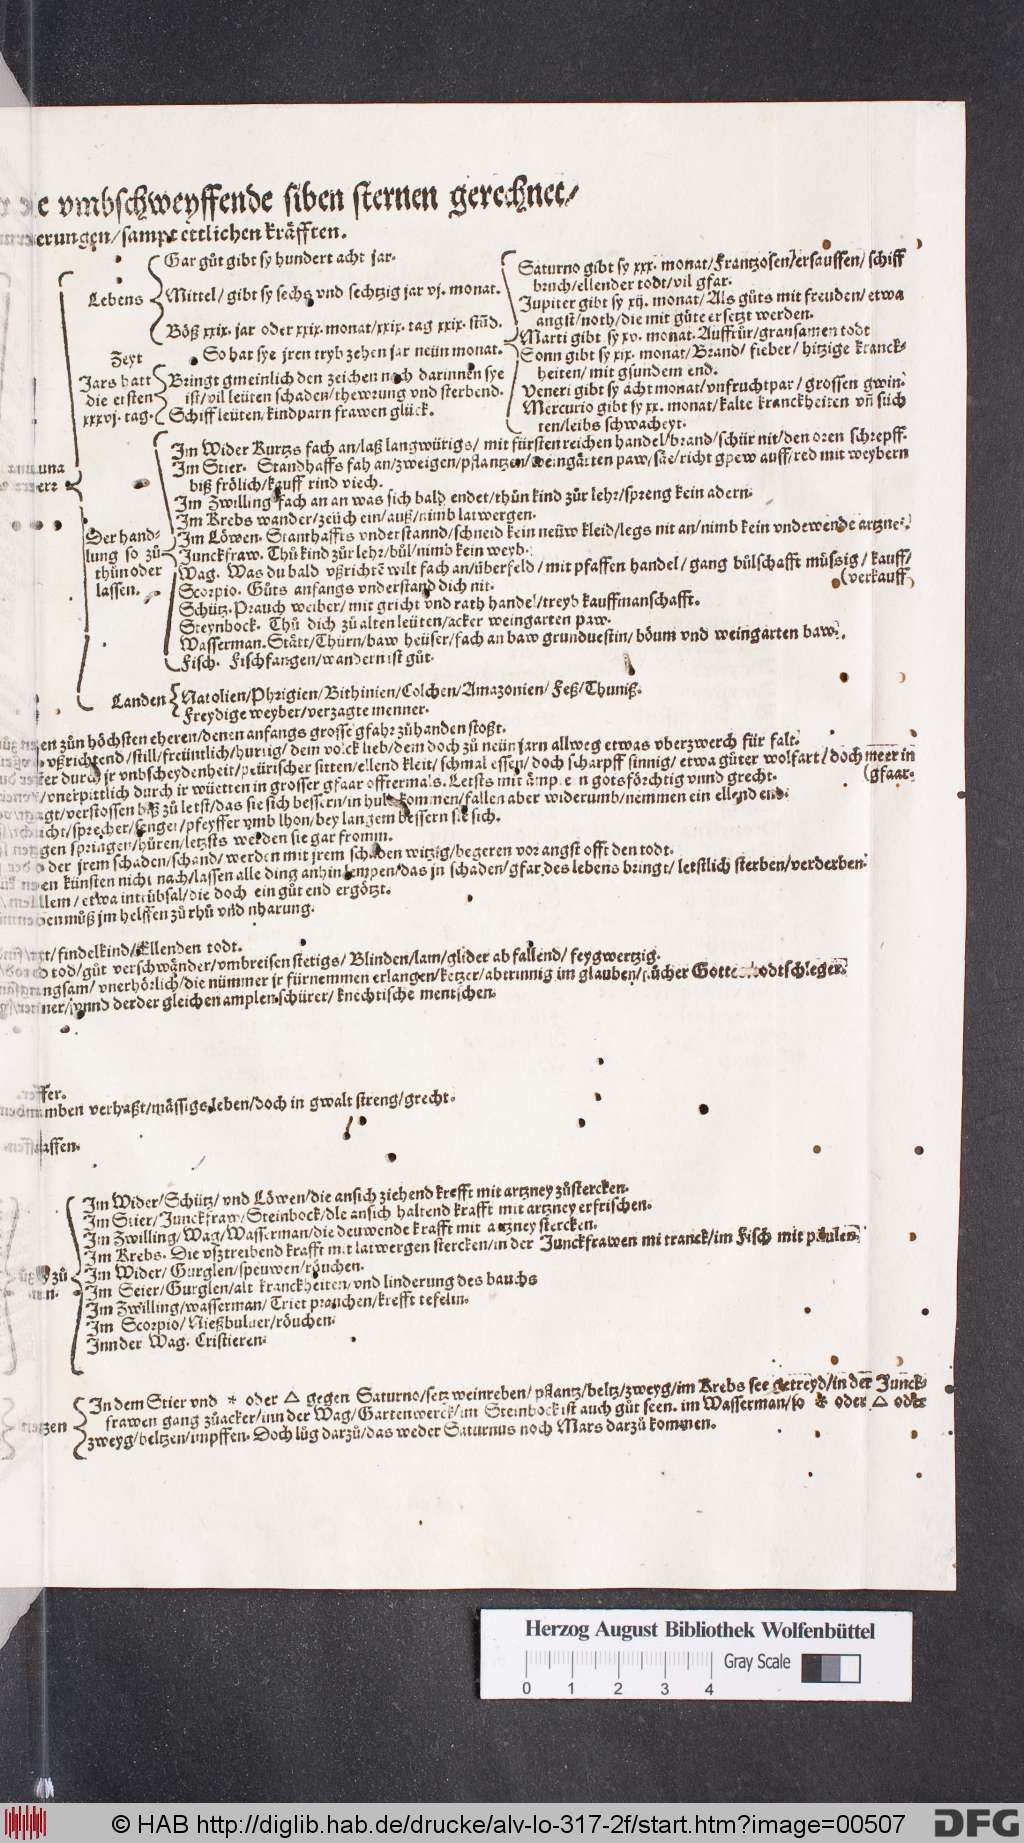 e vmbschweyffende siben sternen gerechnet/
erungen/sampt ettlichen kräfften.
Lebens
Gar gůt gibt sy hundert acht jar.
Mittel/gibt sy sechs vnd sechtzig jar vj. monat.
Böß xxix. jar oder xxix. monat/xxix. tag xxix. stūd.
Zeyt
So hat sye jren tryb zehen jar neün monat.
Saturno gibt sy xxx. monat/Frantzosen/ersauffen/schiff
bruch/ellender todt/vil gfar.
Jupiter gibt sy xij. monat/Als gůts mit freuden/etwa
angst/noth/die mit gůte ersetzt werden.
Marti gibt sy xv. monat. Auffrůr/grausamen todt
Sonn gibt sy xix. monat/Brand/fieber/hitzige kranck-
heiten/mit gsundem end.
Veneri gibt sy acht monat/vnfruchtpar/grossen gwin.
Mercurio gibt sy xx. monat/kalte kranckheiten vn̄ süch
ten/leibs schwacheyt.
Jars hatt
die ersten
xxxvj. tag.
Bringt gmeinlich den zeichen noch darinnen sye
ist/vil leüten schaden/thewrung vnd sterbend.
Schiff leüten/kindparn frawen glück.
Der hand-
lung so zů
thůn oder
lassen.
Im Wider Kurtzs fach an/laß langwürigs/mit fürsten reichen handel/brand/schür nit/den oren schrepff.
Im Stier. Standhaffs fah an/zweigen/pflantzen/weingärten paw/säe/richt gpew auff/red mit weybern
biß frölich/kauff rind viech.
Im Zwilling fach an an was sich bald endet/thůn kind zůr lehr/spreng kein adern.
Im Krebs wander/zeüch ein/auß/nimb latwergen.
Im Löwen. Stanthaffts vnderstannd/schneid kein neüw kleid/legs nit an/nimb kein vndewende artzne.
Junckfraw. Thů kind zůr lehr/bůl/nimb kein weyb.
Wag. Was du bald vßrichtē wilt fach an/überfeld/mit pfaffen handel/gang bůlschafft müssig/kauff/
(verkauff
Scorpio. Gůts anfangs vnderstand dich nit.
Schütz. Prauch weiber/mit gricht vnd rath handel/treyb kauffmanschafft.
Steynbock. Thů dich zů alten leüten/acker weingarten paw.
Wasserman. Stätt/Thürn/baw heüser/fach an baw grunduestin/böum vnd weingarten baw.
Fisch. Fischfangen/wandern ist gůt.
Landen
Natolien/Phrigien/Bithinien/Colchen/Amazonien/Feß/Thuniß.
Freydige weyber/verzagte menner.
en zůn höchsten eheren/denen anfangs grosse gfahr zůhanden stoßt.
vßrichtend/still/freüntlich/hurtig/dem volck lieb/dem doch zů neün jarn allweg etwas vberzwerch für falt.
er durch jr vnbscheydenheit/peürischer sitten/ellend kleit/schmal essen/doch scharpff sinnig/etwa gůter wolfart/doch meer in
(gfaar.
/vnerpittlich durch jr wüetten in grosser gfaar offtermals. Letsts mit ämpern gotsförchtig vnnd grecht.
verstossen biß zů letst/das sie sich bessern/in huld kommen/fallen aber widerumb/nemmen ein ellend end.
/sprecher/senger/pfeyffer vmb lhon/bey langem bessern sie sich.
gen springen/hůren/letzsts werden sie gar fromm.
der jrem schaden/schand/werden mit jrem schaden witzig/begeren vor angst offt den todt.
en künsten nicht nach/lassen alle ding anhin lempen/das jn schaden/gfar des lebens bringt/letstlich sterben/verderben.
llem/etwa in trübsal/die doch ein gůt end ergötzt.
en můß jm helffen zů rhů vnd nharung.
/findelkind/Ellenden todt.
tod/gůt verschwänder/vmbreisen stetigs/Blinden/lam/glider ab fallend/feygwertzig.
ngsam/vnerhörlich/die nümmer jr fürnemmen erlangen/ketzer/abtrinnig im glauben/
ner/vnnd der der gleichen amplen schürer/knechtische mentschen.
ffer.
mben verhaßt/mässigs leben/doch in gwalt streng/grecht.
assen.
zů
Im Wider/Schütz/vnd Löwen/die ansich ziehend krefft mit artzney zůstercken.
Im Stier/Junckfraw/Steinbock/dle ansich haltend krafft mit artzney erfrischen.
Im Zwilling/Wag/Wasserman/die deuwende krafft mit artzney stercken.
Im Krebs. Die vßtreibend krafft mit latwergen stercken/in der Junckfrawen mi tranck/im Fisch mit
Im Wider/Gurglen/speuwen/röuchen.
Im Seier/Gurglen/alt kranckheiten/vnd linderung des bauchs
Im Zwilling/wasserman/Triet prauchen/krefft tefelin.
Im Scorpio/Nießbuluer/röuchen.
Inn der Wag. Cristieren.
In dem Stier vnd ⚹ oder △ gegen Saturno/setz weinreben/pflantz/beltz/zweyg/im Krebs see getreyd/in der Junck-
frawen gang zůacker/inn der Wag/Gartenwerck/im Steinbock ist auch gůt seen. im Wasserman/so ⚹ oder △ oder
zweyg/beltzen/impffen. Doch lůg darzů/das weder Saturnus noch Mars darzů kommen.
Herzog August Bibliothek Wolfenbüttel
Gray Scale
0 1 2 3 4
© HAB http://diglib.hab.de/drucke/alv-lo-317-2f/start.htm?image=00507
DFG